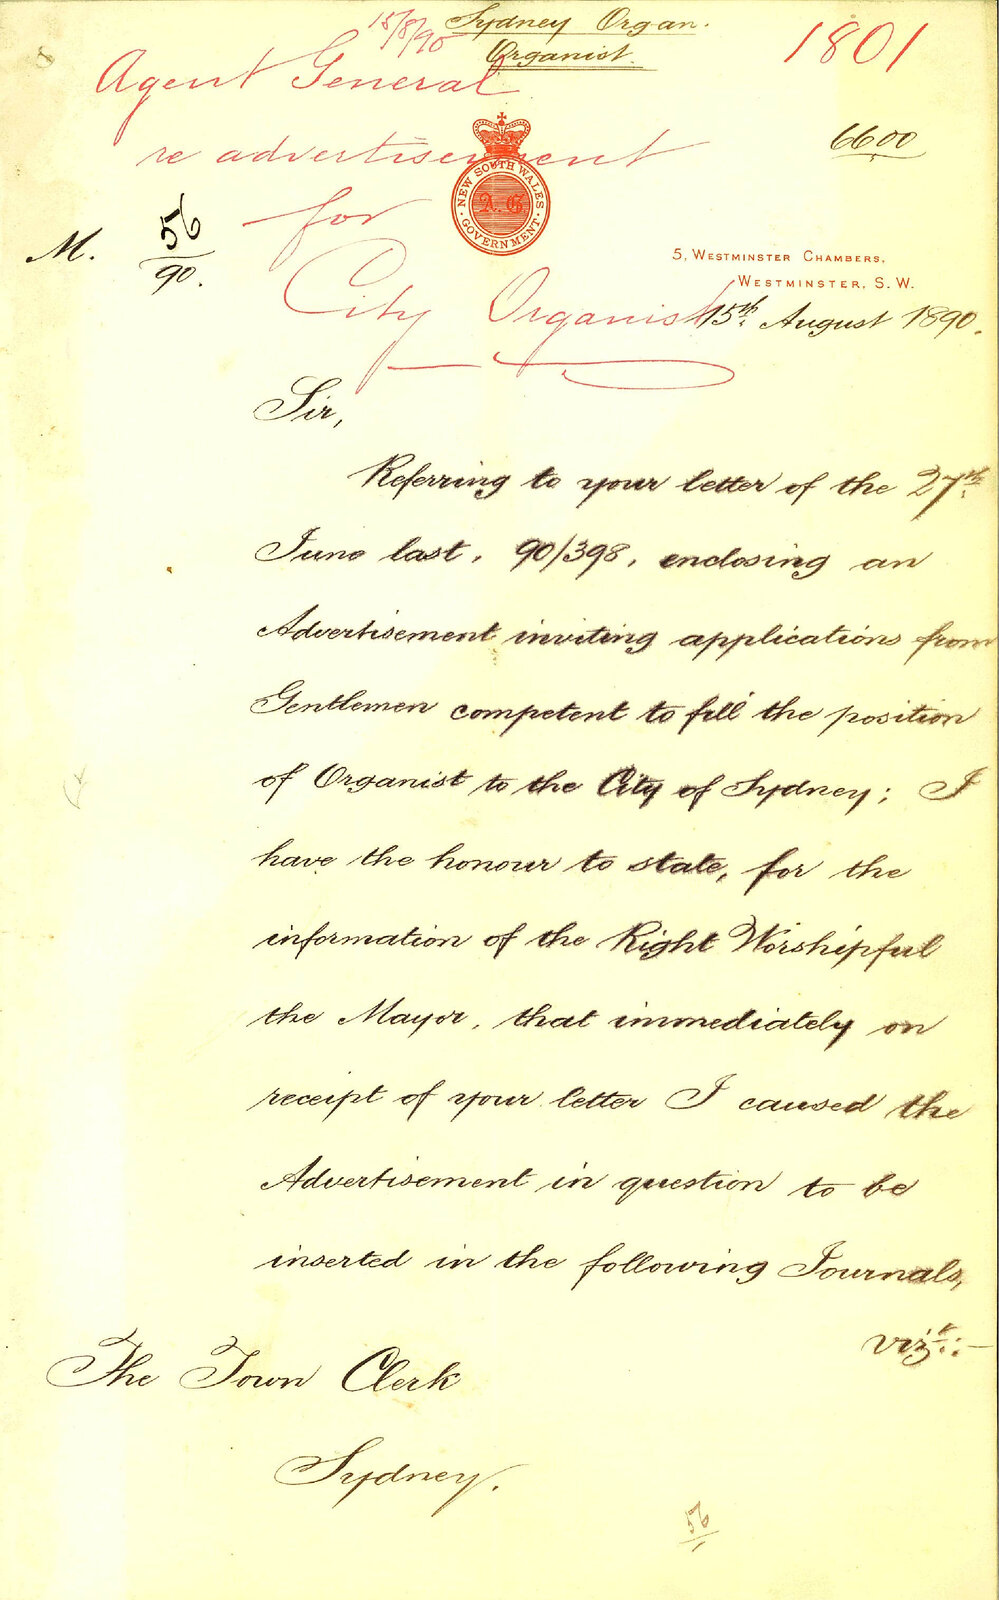 15/8/90
Sydney Organ.
Organist.
1801
Agent General
re advertisement
for
City Organist
6600
NEW SOUTH WALES
A. G.
GOVERNMENT
M. 56/90.
5, WESTMINSTER CHAMBERS,
WESTMINSTER, S. W.
15th August 1890.
Sir,
Referring to your letter of the 27th
June last, 90/398, enclosing an
Advertisement inviting applications from
Gentlemen competent to fill the position
of Organist to the City of Sydney; I
have the honour to state, for the
information of the Right Worshipful
the Mayor, that immediately on
receipt of your letter I caused the
Advertisement in question to be
inserted in the following Journals,
vizt:-
The Town Clerk
Sydney.
56/1